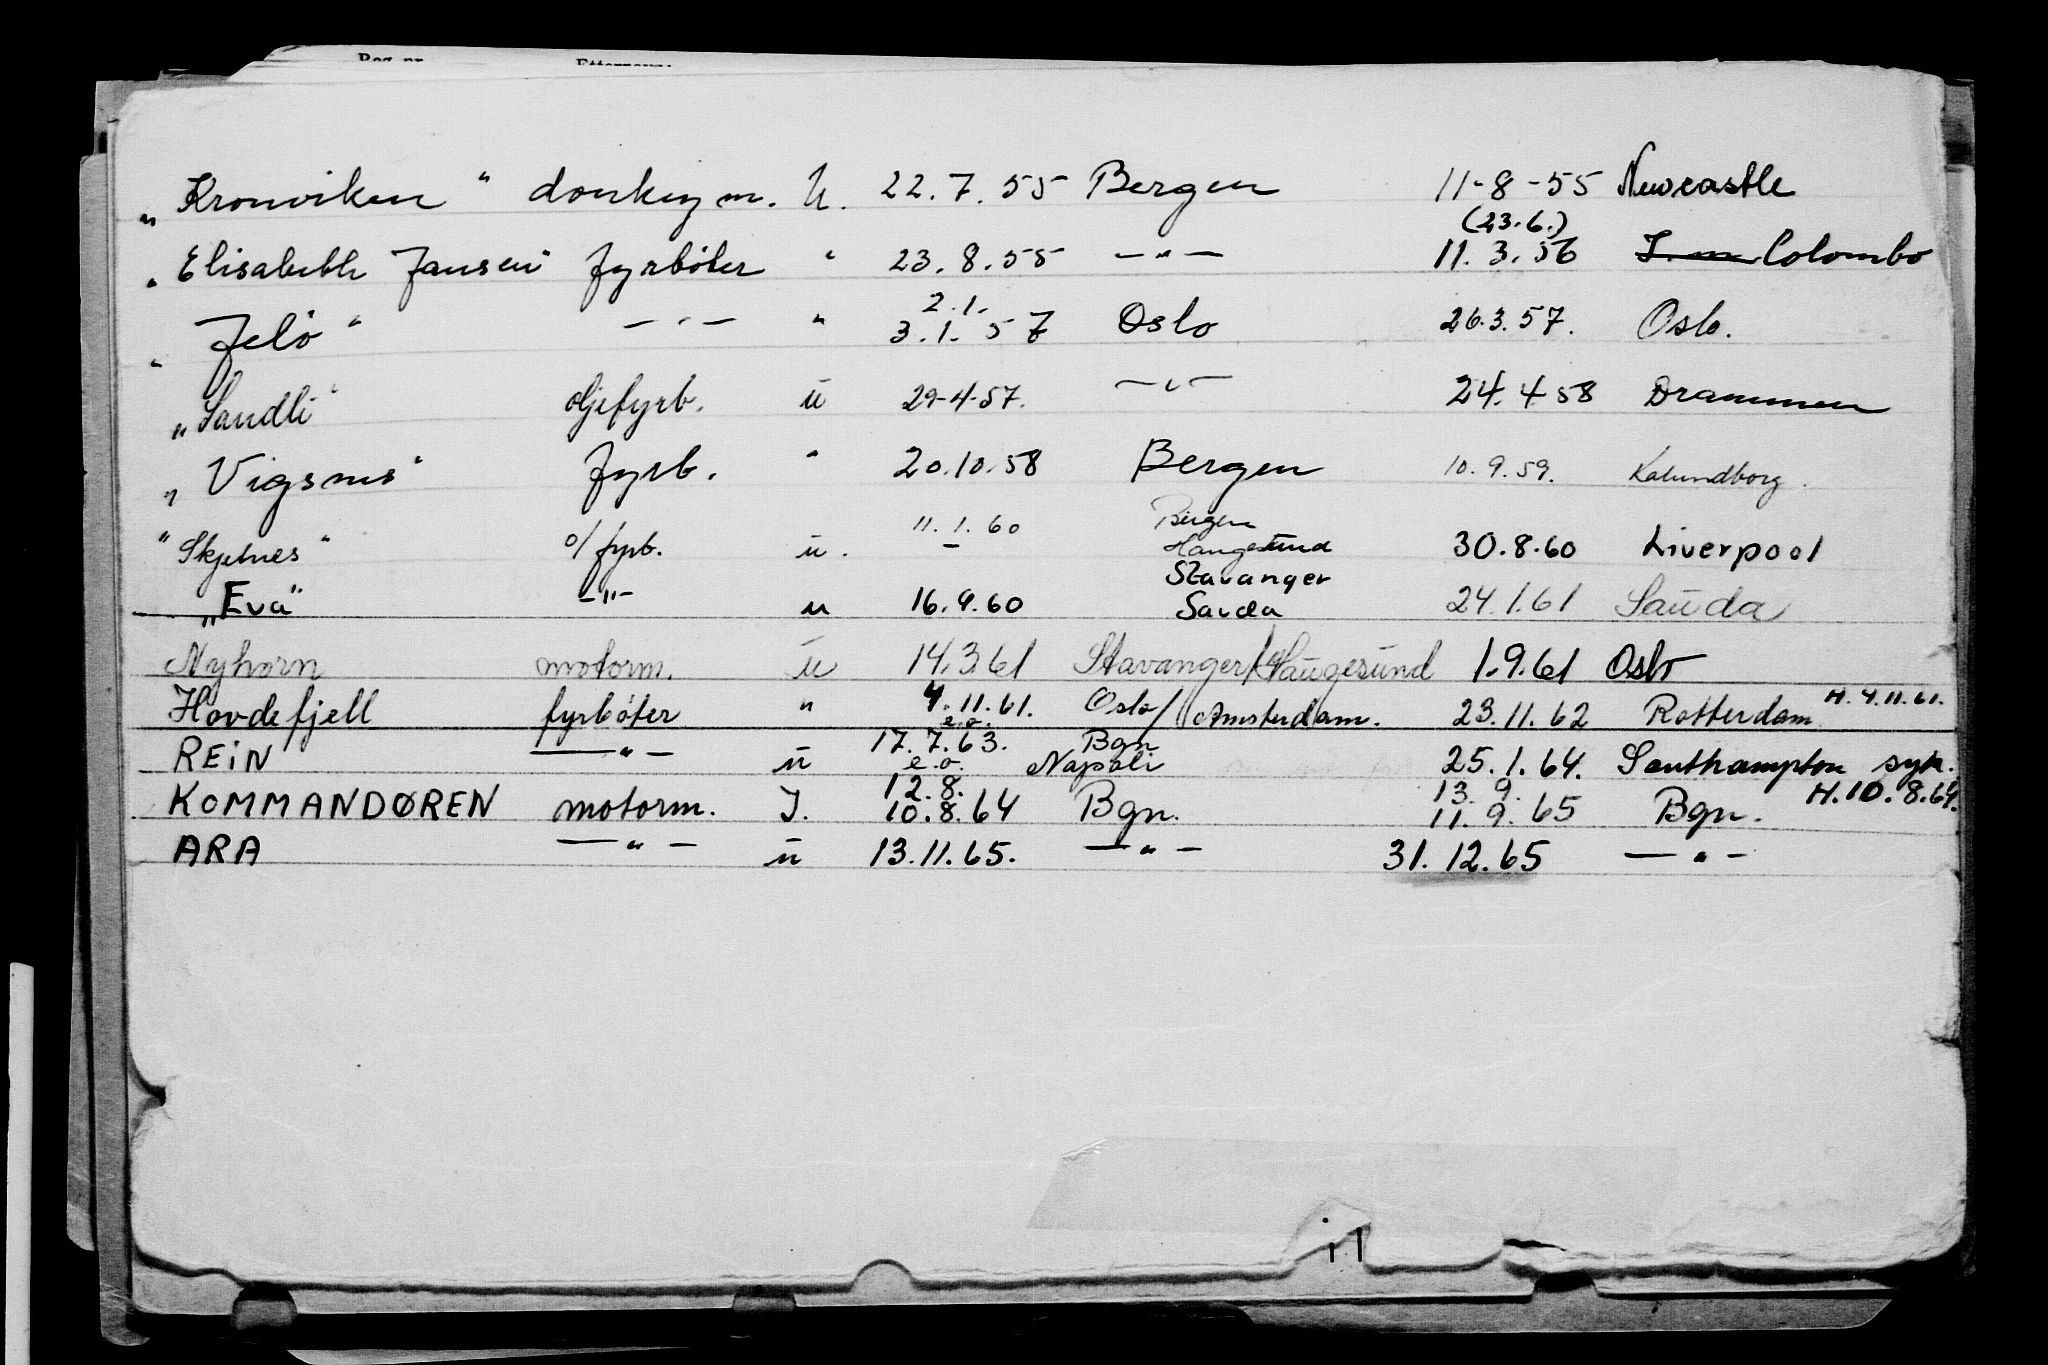 "Kronviken" donkeym. U. 22.7.55 Bergen 11-8-55 Newcastle
(23.6.)
"Elisabeth Jansen fyrbøter " 23.8.55 —"— 11.3.56 Colombo
2.1.
"Jelö" —"— " 3.1.57 Oslo 26.3.57. Oslo.
"Sandli" oljefyrb. u 29-4-57. —"— 24.4 58 Drammen
"Vigsnes" fyrb. " 20.10.58 Bergen 10.9.59. Kalundborg.
11.1.60 Bergen
"Skjelnes" o/fyrb. u. — Haugesund 30.8.60 Liverpool
Stavanger
"Eva" —"— u 16.9.60 Sauda 24.1.61 Sauda
Nyhorn motorm. u 14.3.61 Stavanger/Haugesund 1.9.61 Oslo
Hovdefjell fyrbøter " 4.11.61. Oslo/Amsterdam. 23.11.62 Rotterdam H. 4.11.61.
e.o.
17.7.63. Bgn
REIN —"— u e.o. Napoli 25.1.64. Southampton syk.
12.8. 13.9. H.10.8.64.
KOMMANDØREN motorm. I. 10.8.64 Bgn. 11.9.65 Bgn.
ARA —"— u 13.11.65. —"— 31.12.65 —"—